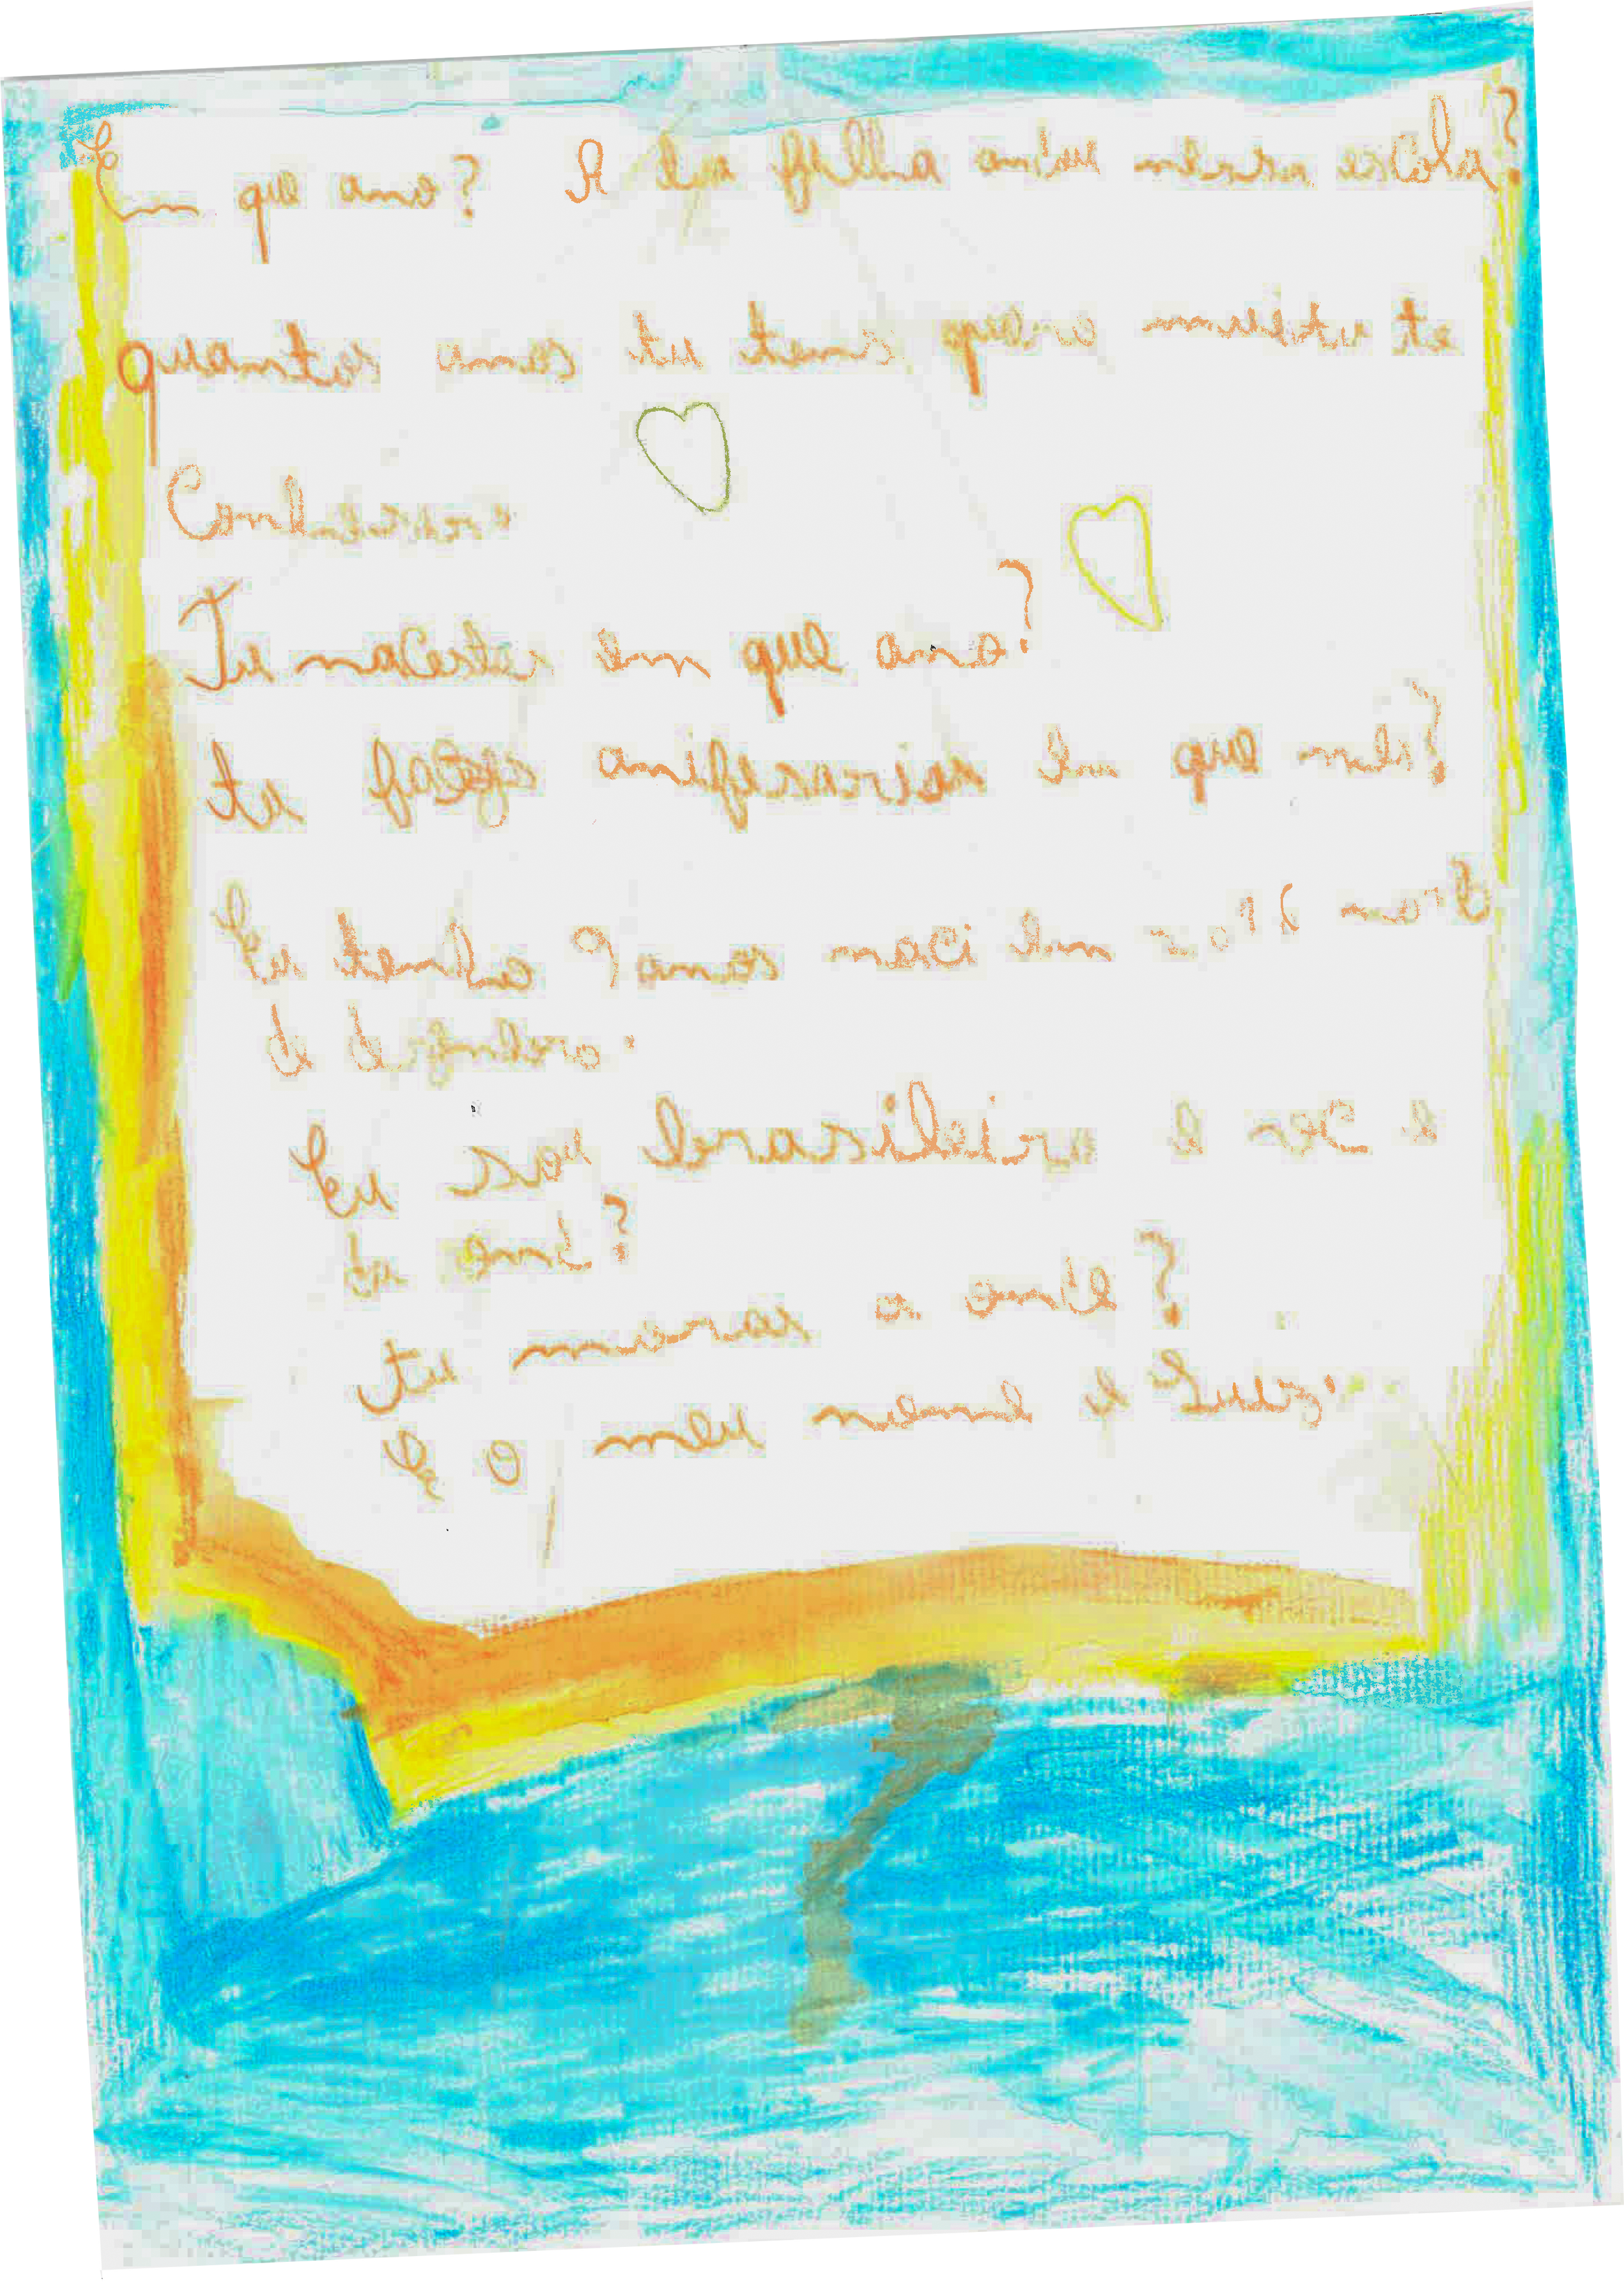 Em que ano? A tua filha andu nesra escola?
quantos anos tu tens quero muito te
Conhecer
Tu nacestes em que ano?
tu fazes anifersarios em que mes?
Eu tenho 9 anos naci em
de
Eu sou brasileiro e
tu
tu moras a onde?
E o meu nome é Luiz.